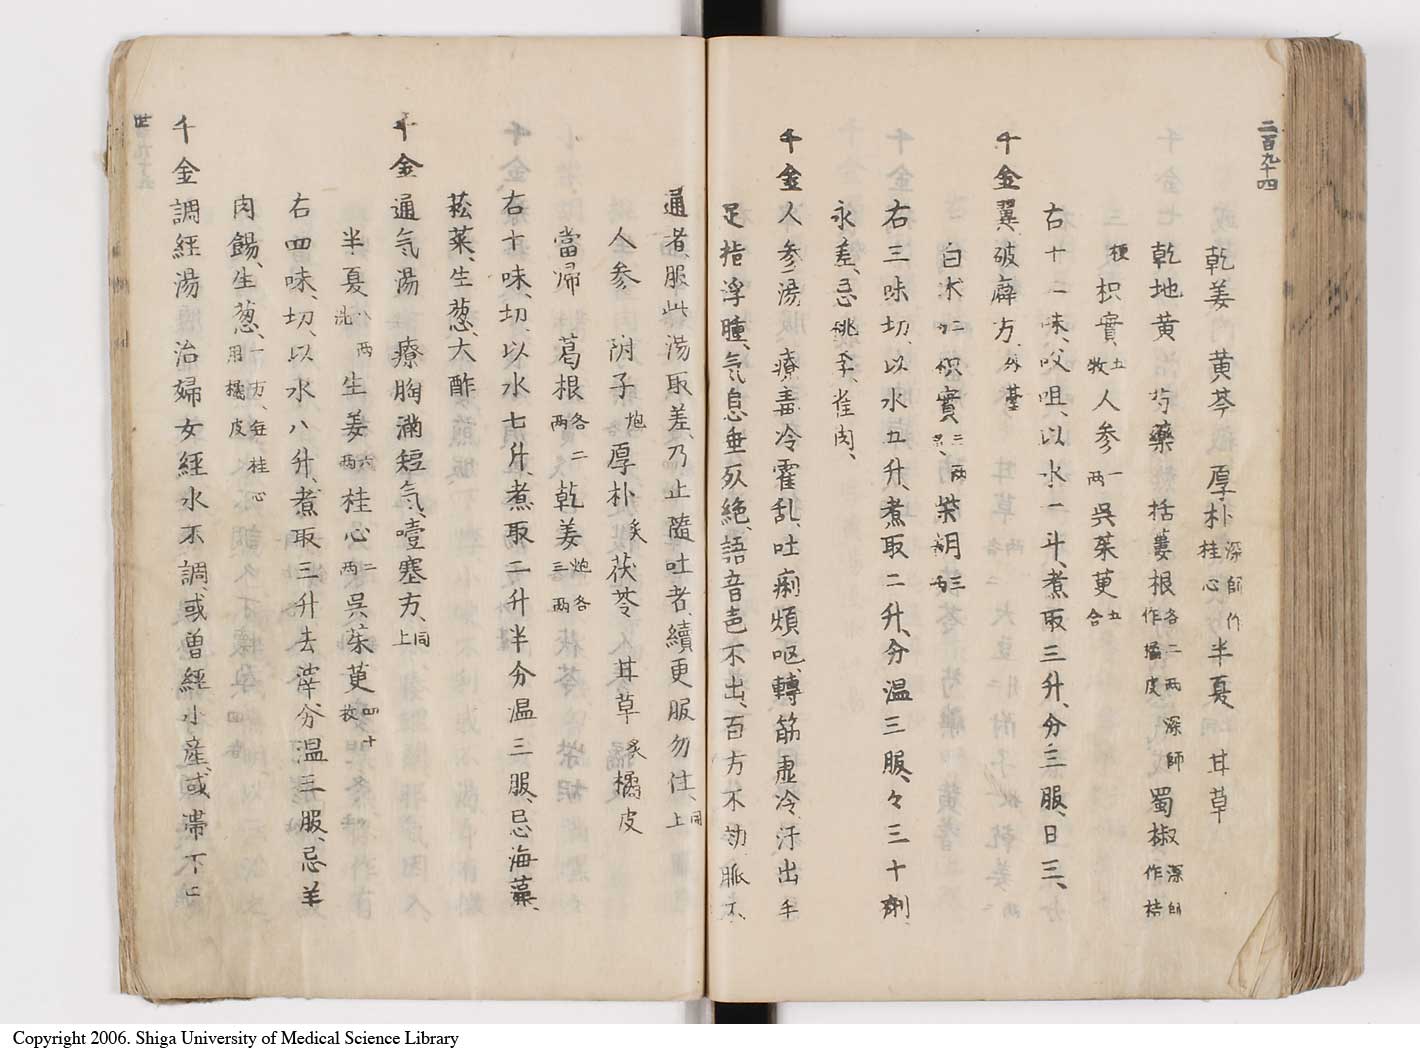 二百九十四
乾姜 黄芩 厚朴 深師作桂心 半夏 甘草
乾地黄 芍藥 栝蔞根 各二両 深師作橘皮 蜀椒 深師作桔
梗 枳實 五枚 人参 一両 呉茱萸 五合
右十一味、㕮咀、以水一斗、煮取三升、分三服、日三、
千金翼破癖方、外臺
白朮 枳實 三両 柴胡 三両
右三味切、以水五升、煮取二升、分温三服、々三十剤、
永差、忌桃李雀肉、
千金人参湯 療毒冷霍乱、吐痢煩呕、轉筋虚冷、汗出手
足指浮腫、気息垂死絶、語音声不出、百方不効、脈不
通者、服此湯取差、乃止、隨吐者、續更服勿住、同上
人参 附子 炮 厚朴 炙 茯苓 甘草 炙 橘皮
當帰 葛根 各二両 乾姜 炮 桂心 各三両
右十味、切、以水七升、煮取二升半、分温三服、忌海藻、
菘菜、生葱、大酢
千金通气湯 療胸満短気、噎塞方、同上
半夏 八両洗 生姜 六両 桂心 二両 呉茱萸 四十枚
右四味、切、以水八升、煮取三升、去滓、分温三服、忌羊
肉餳、生葱、一方、無桂心用橘皮
千金調經湯 治婦女經水不調、或曽經小産、或滞下